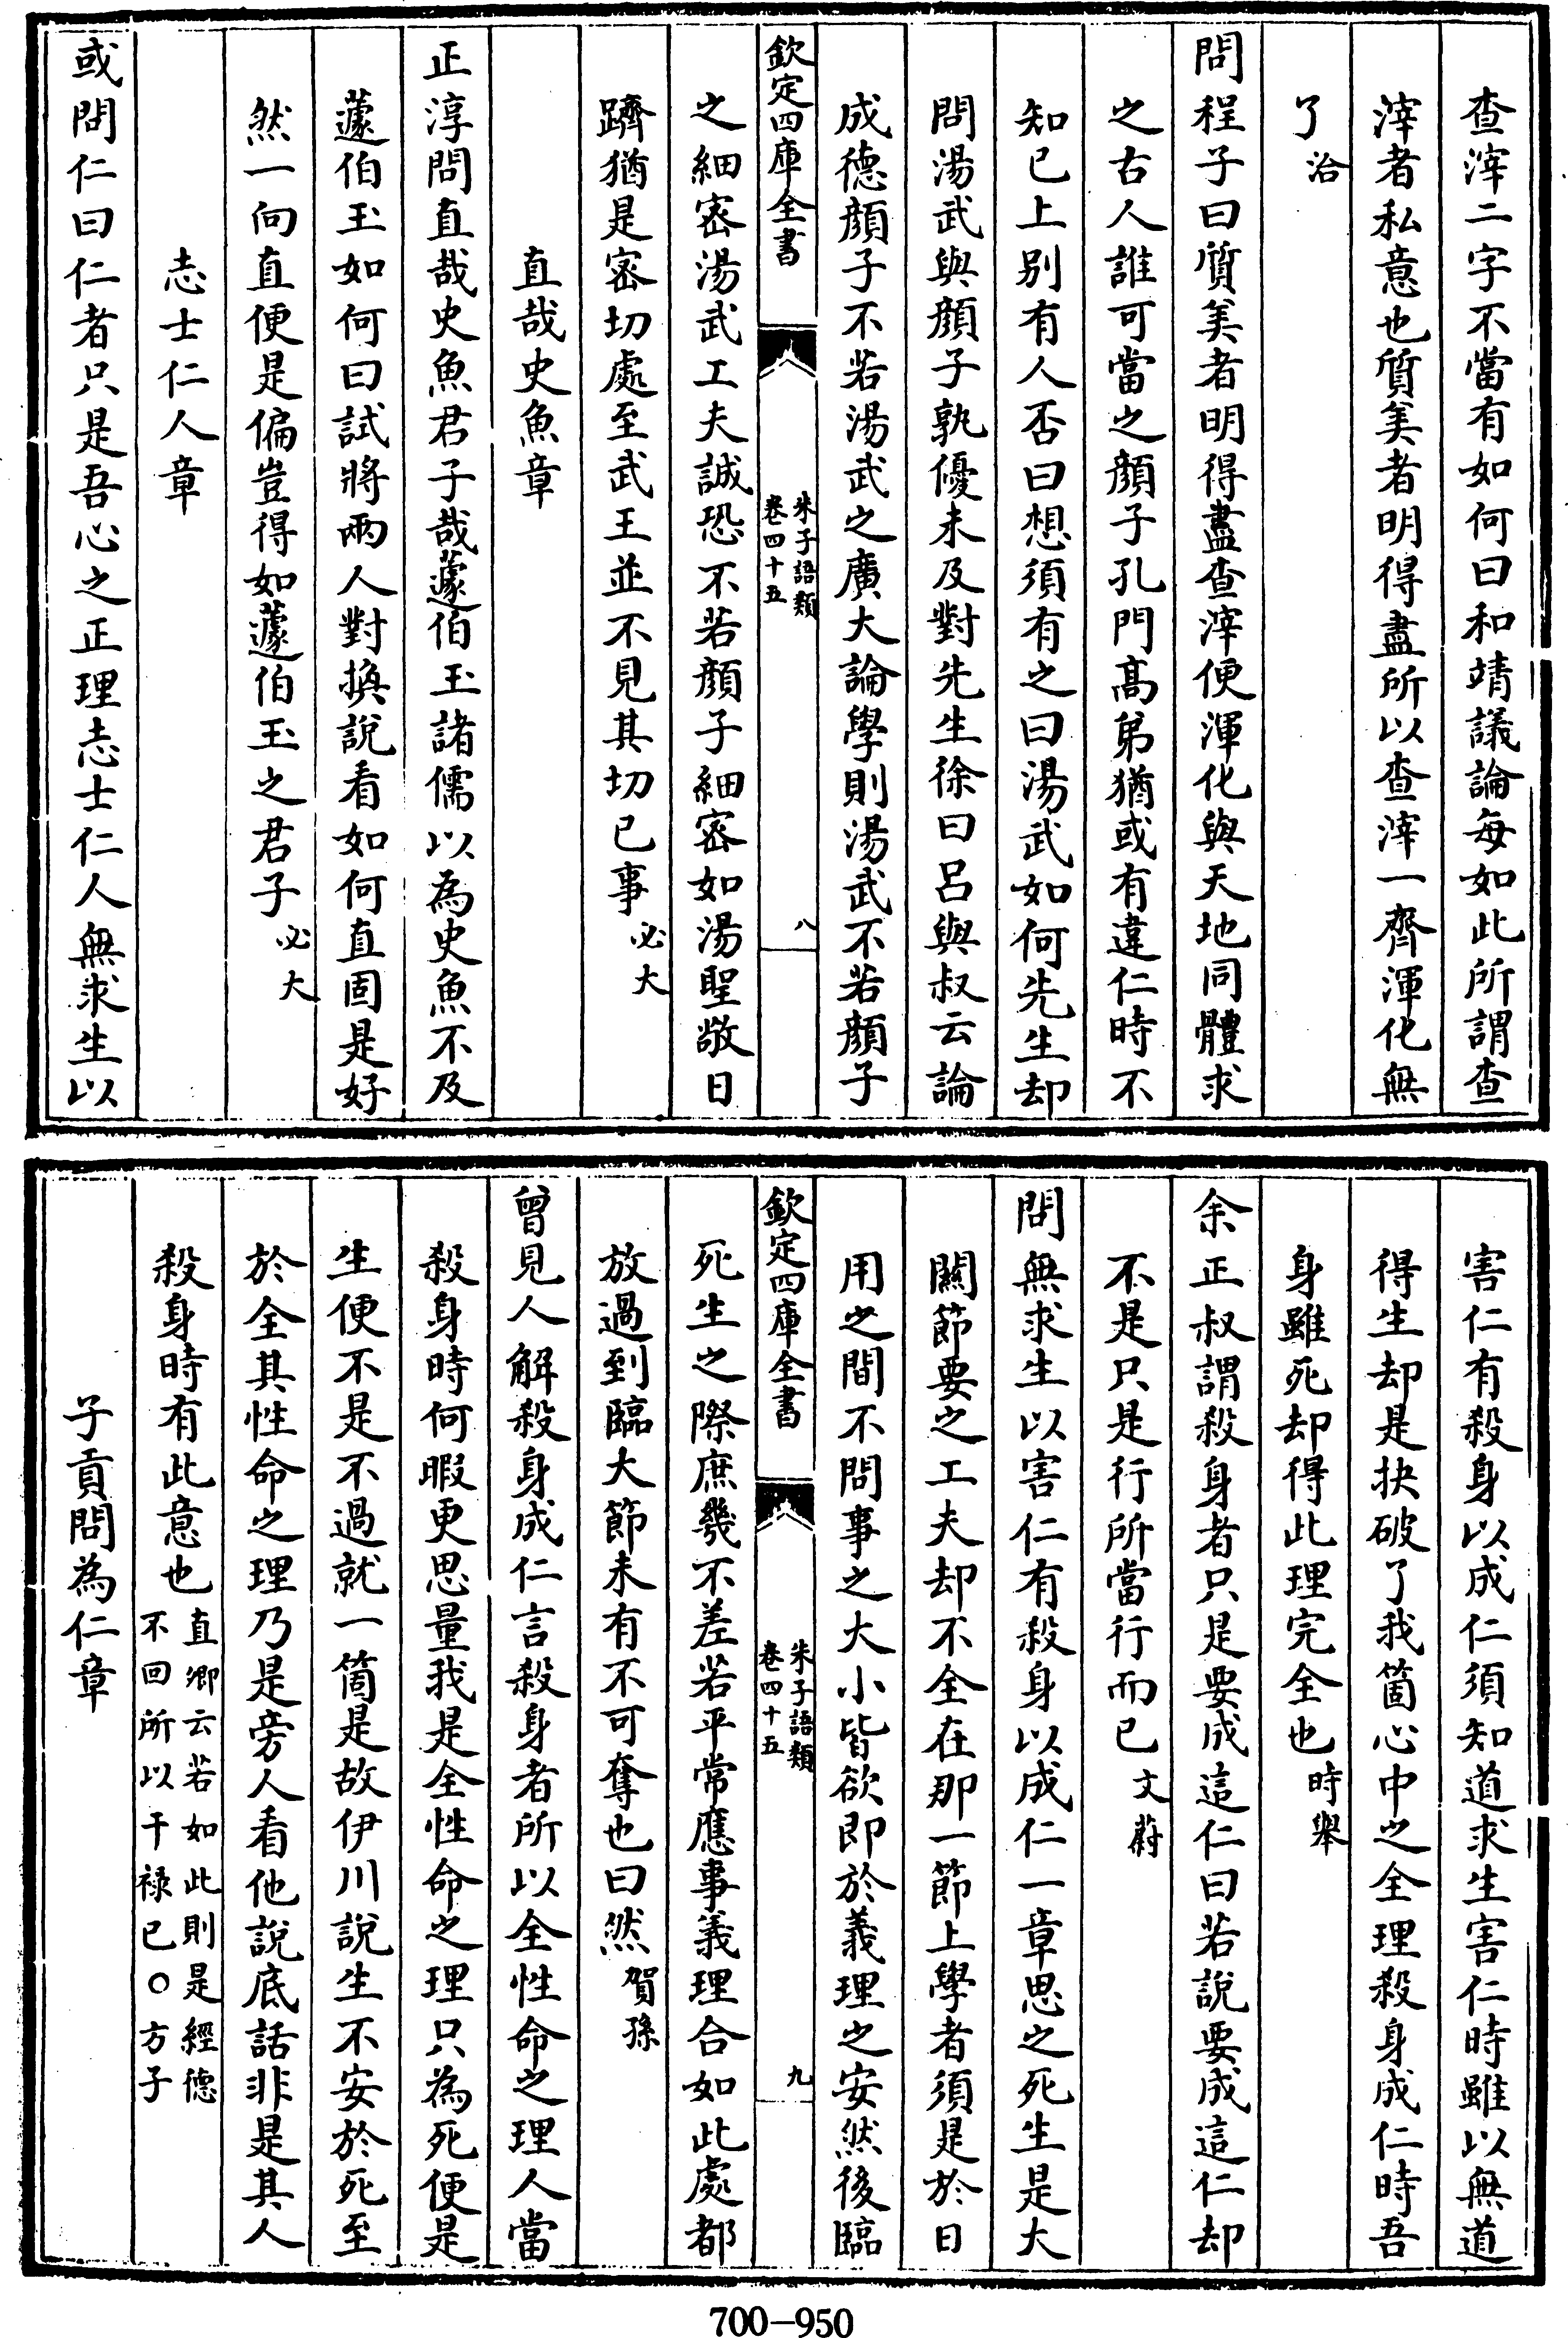 查滓二字不當有如何曰和靖議論每如此所謂查
滓者私意也質美者明得盡所以查滓一齊渾化無
了治
問程子曰質美者明得盡查滓便渾化與天地同體求
之古人誰可當之顔子孔門髙弟猶或有違仁時不
知已上别有人否曰想須有之曰湯武如何先生却
問湯武與顔子孰優未及對先生徐曰呂與叔云論
成德顔子不若湯武之廣大論學則湯武不若顔子
欽定四庫全書
朱子語類
卷四十五
八
之細密湯武工夫誠恐不若顔子細密如湯聖敬日
躋猶是密切處至武王並不見其切已事必大
直哉史魚章
正淳問直哉史魚君子哉蘧伯玉諸儒以為史魚不及
蘧伯玉如何曰試將兩人對換說看如何直固是好
然一向直便是偏豈得如蘧伯玉之君子必大
志士仁人章
或問仁曰仁者只是吾心之正理志士仁人無求生以
害仁有殺身以成仁須知道求生害仁時雖以無道
得生却是抉破了我箇心中之全理殺身成仁時吾
身雖死却得此理完全也時舉
余正叔謂殺身者只是要成這仁曰若說要成這仁却
不是只是行所當行而已文蔚
問無求生以害仁有殺身以成仁一章思之死生是大
闗節要之工夫却不全在那一節上學者須是於日
用之間不問事之大小皆欲即於義理之安然後臨
欽定四庫全書
朱子語類
卷四十五
九
死生之際庶幾不差若平常應事義理合如此處都
放過到臨大節未有不可奪也曰然賀孫
曾見人解殺身成仁言殺身者所以全性命之理人當
殺身時何暇更思量我是全性命之理只為死便是
生便不是不過就一箇是故伊川說生不安於死至
於全其性命之理乃是旁人看他說底話非是其人
殺身時有此意也直卿云若如此則是經德
不回所以干祿已○方子
子貢問為仁章
700-950